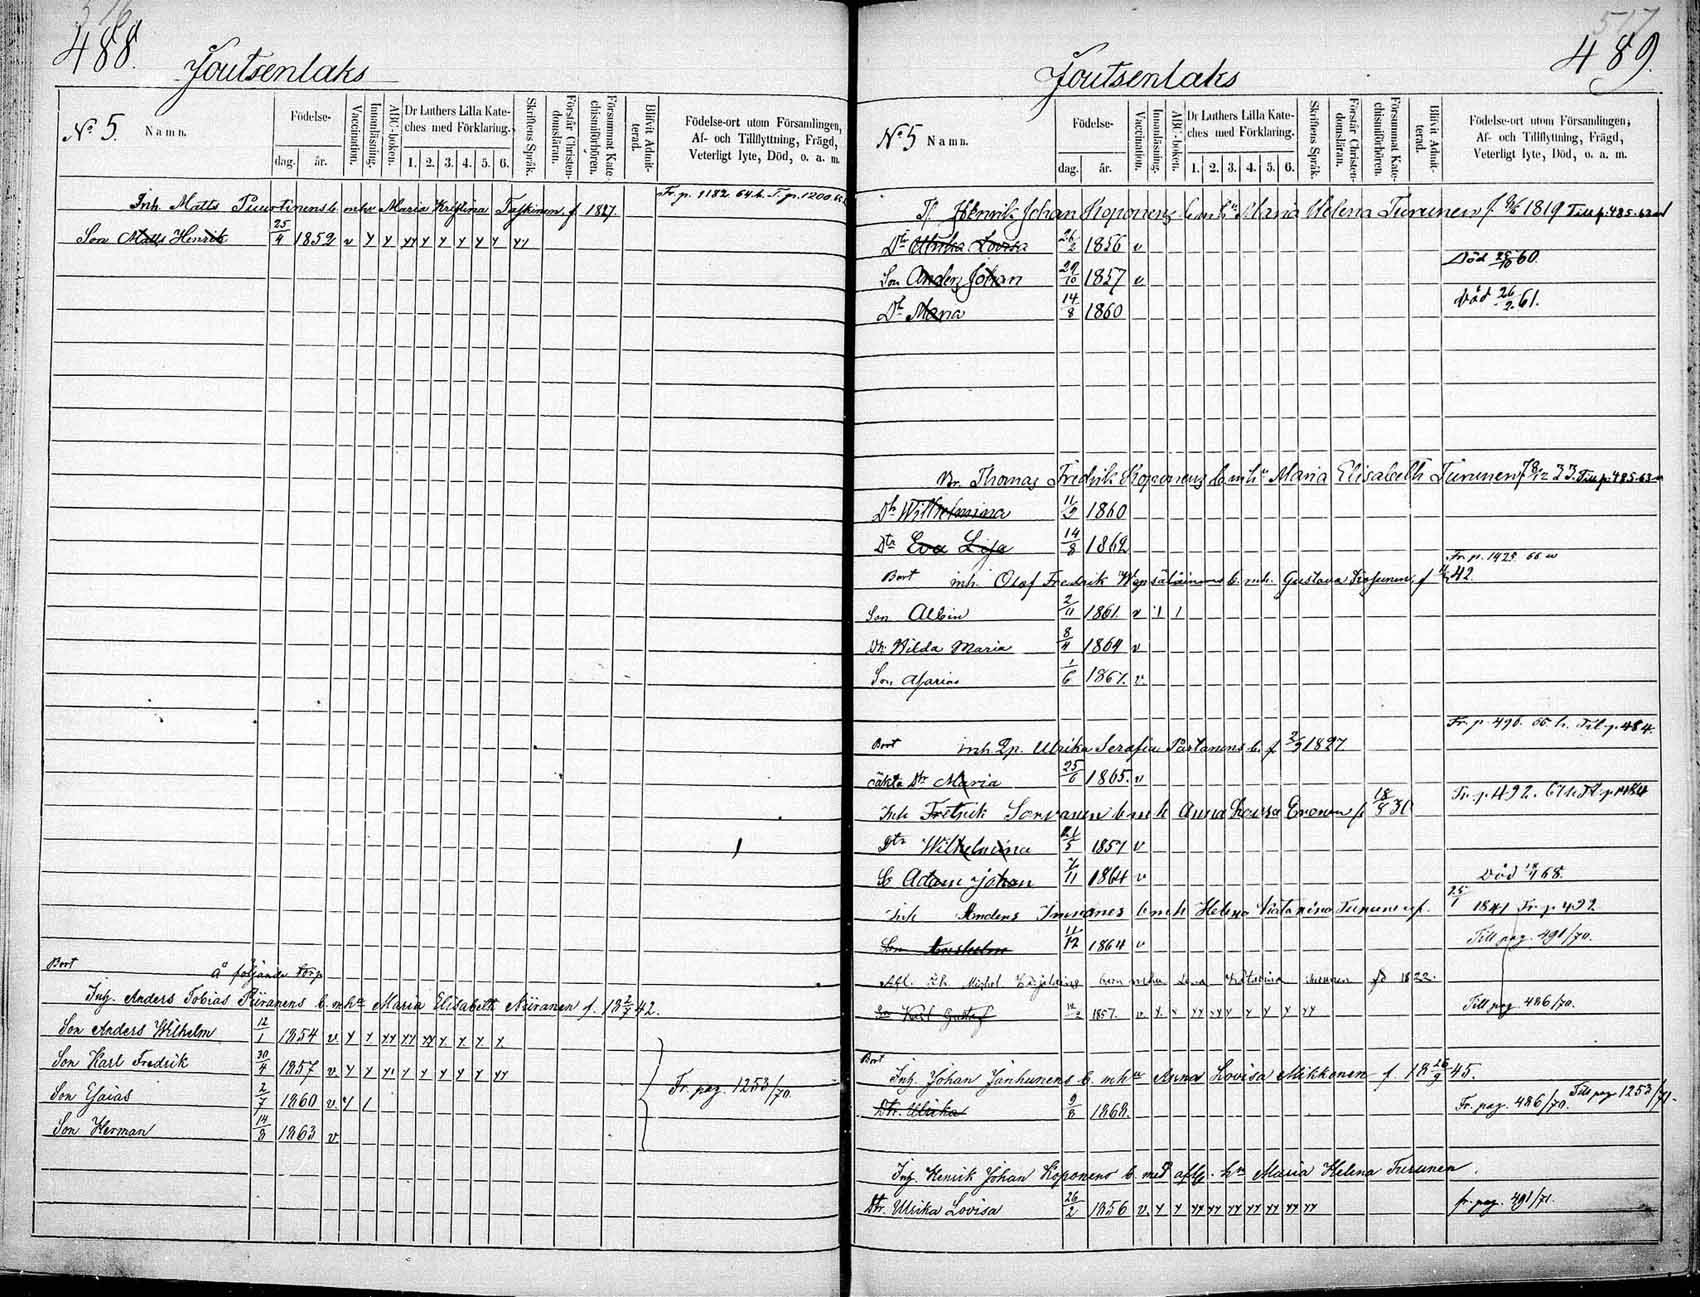 488.
Joutsenlaks
No 5. Namn.
Födelse-
dag. år.
Vaccination.
Innanläsning.
ABC-boken.
Dr Luthers Lilla Kate-
ches med Förklaring.
1. 2. 3. 4. 5. 6.
Skriftens Språk.
Förstår Christen-
domsläran.
Försummat Kate-
chismiförhören.
Blifvit Admit-
terad.
Födelse-ort utom Församlingen,
Af- och Tillflyttning, Frägd,
Veterligt lyte, Död, o. a. m.
Fr. p. 1182 64 h. T. p. 1200
Inh. Matts b. mhu Maria Kristina f 1827.
Son Matts Henrik 25/4 1852 v y y yy y y y y y yy
Bort
å följande torp
Inh. Anders Tobias Piiranens b. mhu Maria Elisabeth Niiranen f. 18 2/7 42.
Son Anders Wilhelm 12/1 1854 v y y yy yy yy y y y y
Son Karl Fredrik 30/4 1857 v y y y y y y y y yy
Fr. pag. 1253/70.
Son Esaias 2/7 1860 v. y 1
Son Herman 14/8 1863 v.
517
489.
Joutsenlaks
No 5 Namn.
Födelse-
dag. år.
Vaccination.
Innanläsning.
ABC-boken.
Dr Luthers Lilla Kate-
ches med Förklaring.
1. 2. 3. 4. 5. 6.
Skriftens Språk.
Förstår Christen-
domsläran.
Försummat Kate-
chismiförhören.
Blifvit Admit-
terad.
Födelse-ort utom Församlingen,
Af- och Tillflyttning, Frägd,
Veterligt lyte, Död, o. a. m.
Henrik Johan Koponens b. m. hu Maria Helena Turunen f. 1819 Till p. 485.
Dr Ulrika Lovisa 26/2 1856 v
Död 25/10 60.
Son Anders Johan 29/10 1857 v
Död 26/2 61.
Dr Maria 14/8 1860
Br. Thomas Fredrik Koponens b. mhu Maria Elisabeth Turunen f 33. Till p. 485.
Dr Wilhelmina 11/9 1860
Dtr Eva Lisa 14/8 1862
Fr. p. 1425 66
Bort inh. Olof Fredrik b. mh. Gustava f 42.
Son Albin 2/11 1861. v 1 1
Dr. Hilda Maria 8/4 1864 v
Son Asarias 1/6 1867. v.
Fr. p. 490. 66 h. Till p. 484.
Bort inh. Ulrika Serafia Partanens b. f 2/9 1827
oäkta Dtr Maria 25/6 1865. v
Fr. p. 492. 67 h. p. 484
Inh Fredrik Sorvanen b m h Anna Lovisa Eronen f 18/8 30
Dtr Wilhelmina 21/5 1857 v
Adam Johan 11 1864 v
Död 68.
Inh Anders Immonens b m h Helena Katarina Turunen f. 25/1 1841 Fr. p. 492
Till pag. 491/70.
Son 11/12 1864 v
Afl. Michel hu Lena Katarina Turunen fd 1822.
Till pag. 486/70.
Son Karl Gustaf 1857. v. y y yy yy y y y y yy
Bort
Inh. Johan Janhunens b. mhu Anna Lovisa Mikkonen f. 18 26/9 45.
Till pag 1253/71.
Dtr. Ulrika 9/8 1868.
Fr. pag. 486/70.
Inh. Henrik Johan Koponens b. med aflg. hu Maria Helena Turunen.
Dtr. Ulrika Lovisa 26/2 1856 v. y y yy yy yy yy yy yy yy
fr. pag. 491/71.